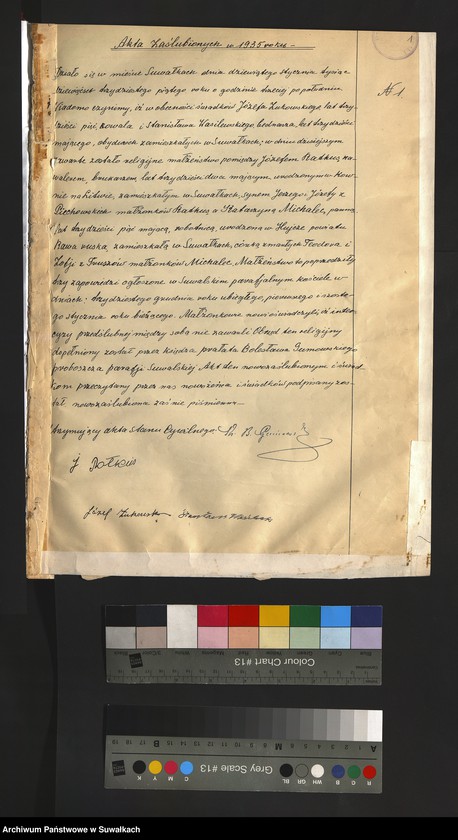 Akta Zaślubionych w 1935 roku —
1
№ 1
Działo się w mieście Suwałkach dnia dziewiątego stycznia tysiąc
dziewięćset trzydziestego piątego roku o godzinie trzeciej po południu
Wiadomo czynimy, iż w obecności świadków Józefa Żukowskiego, lat trzy-
dzieści pięć, kowala i Stanisława Wasilewskiego bednarza, lat trzydzieści
mającego, obydwóch zamieszkałych w Suwałkach; w dniu dzisiejszym
zawarte zostało religijne małżeństwo pomiędzy Józefem Ratkus, ka-
walerem, lat trzydzieści dwa mającym, urodzonym w Kow-
nie na Litwie, zamieszkałym w Suwałkach, synem Jerzego i Józefy z
Piechowskich małżonków Ratkus a Katarzyną Michalec, panną
lat trzydzieści pięć mającą, robotnicą, urodzoną w Hujcze powiatu
Rawa ruska, zamieszkałą w Suwałkach, córką zmarłych Teodora i
Zofji z małżonków Michalec. Małżeństwo to poprzedziły
trzy zapowiedzi ogłoszone w Suwalskim parafjalnym kościele w
dniach: trzydziestego grudnia roku ubiegłego, pierwszego i szóste-
go stycznia roku bieżącego. Małżonkowie nowi oświadczyli, iż inter-
cyzy przedślubnej między sobą nie zawarli. Obrzęd ten religijny
dopełniony został przez księdza prałata Bolesława Gumowskiego
proboszcza parafji Suwalskiej. Akt ten nowozaślubionym i świad-
kom przeczytany przez nas nowożeńca i świadków podpisany zos-
tał nowozaślubiona zaś nie piśmienna —
Utrzymujący akta stanu Cywilnego: Ks. B. Gumowski
J Rotkus
Józef Żukowski Stanisław Wasilewski
Colour Chart #13
Grey Scale #13
Archiwum Państwowe w Suwałkach